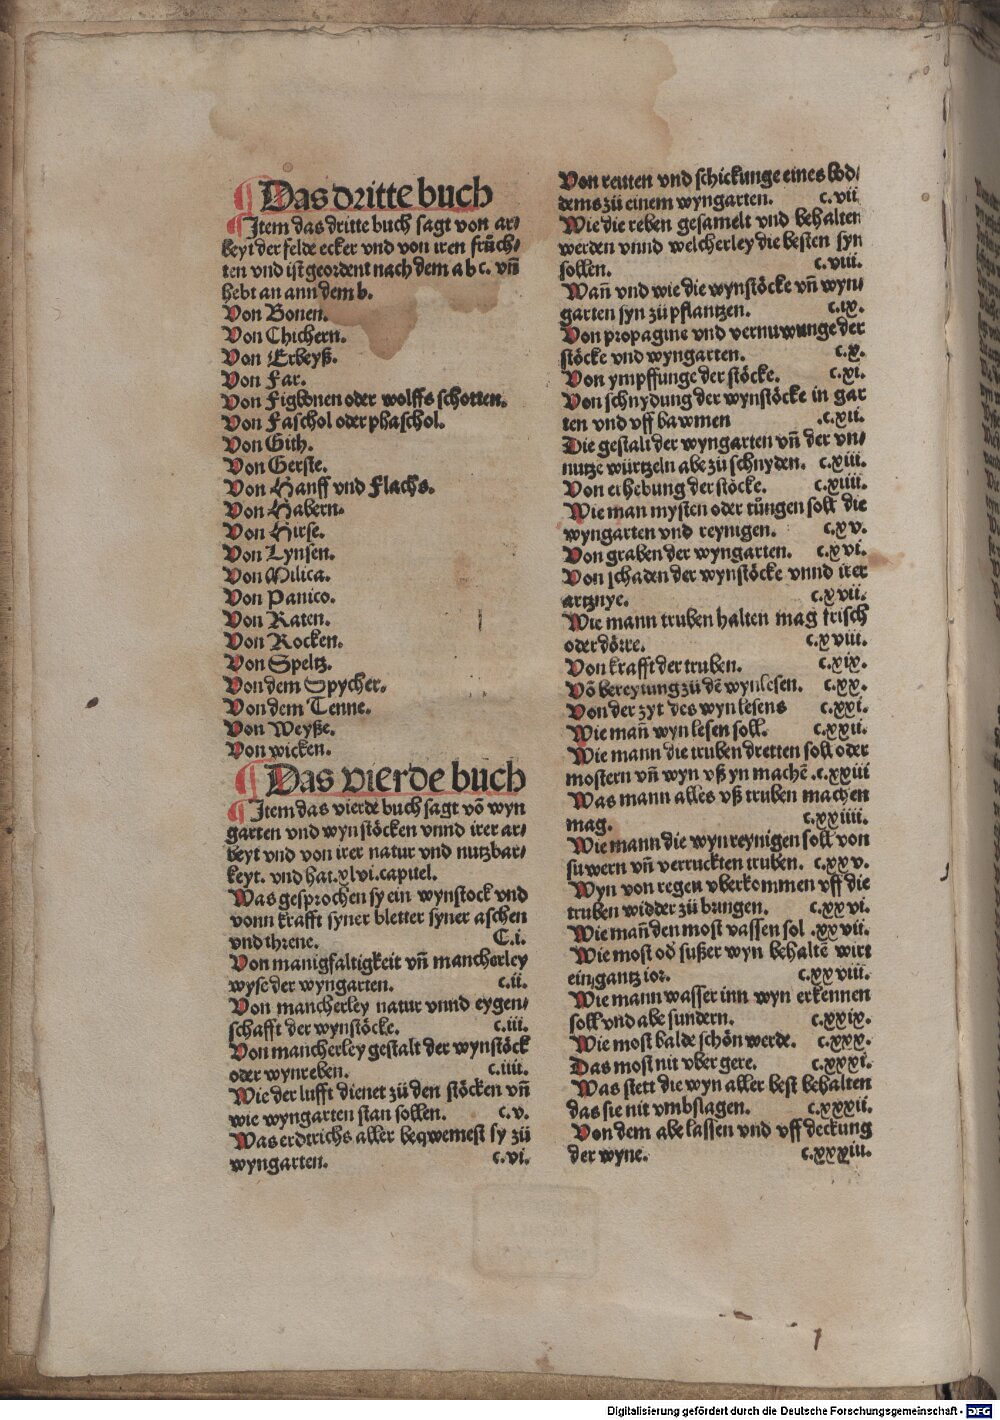 Das dritte buch
Item das dritte buch sagt von ar⸗
beyt der felde ecker vnd von iren früch⸗
ten vnd ist geordent nach dem a b c. vn̄
hebt an ann dem b.
Von Bonen.
Von Chichern.
Von Erbeyß.
Von Far.
Von Figbonen oder wolffs schotten.
Von Faschol oder phaschol.
Von Gith.
Von Gerste.
Von Hanff vnd Flachs.
Von Habern.
Von Hirse.
Von Lynsen.
Von Milica.
Von Panico.
Von Raten.
Von Rocken.
Von Speltz.
Von dem Spycher.
Von dem Tenne.
Von Weyße.
Von wicken.
Das vierde buch
Item das vierde buch sagt vō wyn
garten vnd wynstöcken vnnd irer ar⸗
beyt vnd von irer natur vnd nutzbar⸗
keyt. vnd hat .xlvi. capitel.
Was gesprochen sy ein wynstock vnd
vonn krafft syner bletter syner aschen
vnd threne. C.i.
Von manigfaltigkeit vn̄ mancherley
wyse der wyngarten. c.ii.
Von mancherley natur vnnd eygen⸗
schafft der wynstöcke. c.iii.
Von mancherley gestalt der wynstöck
oder wynreben. c.iiii.
Wie der lufft dienet zü den stöcken vn̄
wie wyngarten stan sollen. c.v.
Was erdtrichs aller beqwemest sy zü
wyngarten. c.vi.
Von reuten vnd schickunge eines bod⸗
dems zü einem wyngarten. c.vii
Wie die reben gesamelt vnd behalten
werden vnnd welcherley die besten syn
sollen. c.viii.
Wan̄ vnd wie die wynstöcke vn̄ wyn⸗
garten syn zü pflantzen. c.ix.
Von propagine vnd vernuwunge der
stöcke vnd wyngarten. c.x.
Von ympffunge der stöcke. c.xi.
Von schnydung der wynstöcke in gar
ten vnd vff bawmen .c.xii.
Die gestalt der wyngarten vn̄ der vn⸗
nutze würtzeln abe zü schnyden. c.xiii.
Von erhebung der stöcke. c.xiiii.
Wie man mysten oder tüngen soll die
wyngarten vnd reynigen. c.xv.
Von graben der wyngarten. c.xvi.
Von schaden der wynstöcke vnnd irer
artznye. c.xvii.
Wie mann truben halten mag frisch
oder dörre. c.xviii.
Von krafft der truben. c.xix.
Vō bereytung zü dē wynlesen. c.xx.
Von der zyt des wyn lesens c.xxi.
Wie man̄ wyn lesen soll. c.xxii.
Wie mann die truben dretten soll oder
mostern vn̄ wyn vß yn machē .c.xxiii
Was mann alles vß truben machen
mag. c.xxiiii.
Wie mann die wyn reynigen soll von
suwern vn̄ verruckten truben. c.xxv.
Wyn von regen vberkommen vff die
truben widder zü bringen. c.xxvi.
Wie man̄ den most vassen sol .xxvii.
Wie most od süßer wyn behaltē wirt
ein gantz ior. c.xxviii.
Wie mann wasser inn wyn erkennen
soll vnd abe sundern. c.xxix.
Wie most balde schön werde. c.xxx.
Das most nit vber gere. c.xxxi.
Was stett die wyn aller best behalten
das sie nit vmbslagen. c.xxxii.
Von dem abe lassen vnd vff deckung
der wyne. c.xxxiii.
Digitalisierung gefördert durch die Deutsche Forschungsgemeinschaft - DFG